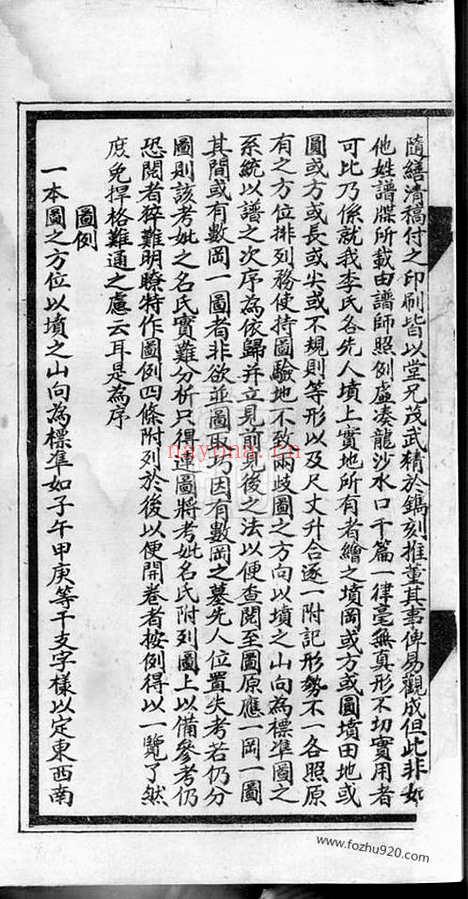 隨繕清稿付之印刷皆以堂兄茂武精於鐫刻推董其事俾易觀成但此非如
他姓譜牒所載由譜師照例虛湊龍沙水口千篇一律毫無真形不切實用者
可比乃係就我李氏各先人墳上實地所有者繪之墳岡或方或圓墳田地或
圓或方或長或尖或不規則等形以及尺丈升合逐一附記形勢不一各照原
有之方位排列務使持圖驗地不致兩歧圖之方向以墳之山向為標準圖之
系統以譜之次序為依歸并立見前見後之法以便查閱至圖原應一岡一圖
其間或有數岡一圖者非欲並圖取巧因有數岡之墓先人位置失考若仍分
圖則該考妣之名氏實難分析只得連圖將考妣名氏附列圖上以備參考仍
恐閱者猝難明瞭特作圖例四條附列於後以便開卷者按例得以一覽了然
庶免捍格難通之慮云耳是為序
圖例
一本圖之方位以墳之山向為標準如子午甲庚等干支字樣以定東西南
nayona.cn
www.fozhu920.com